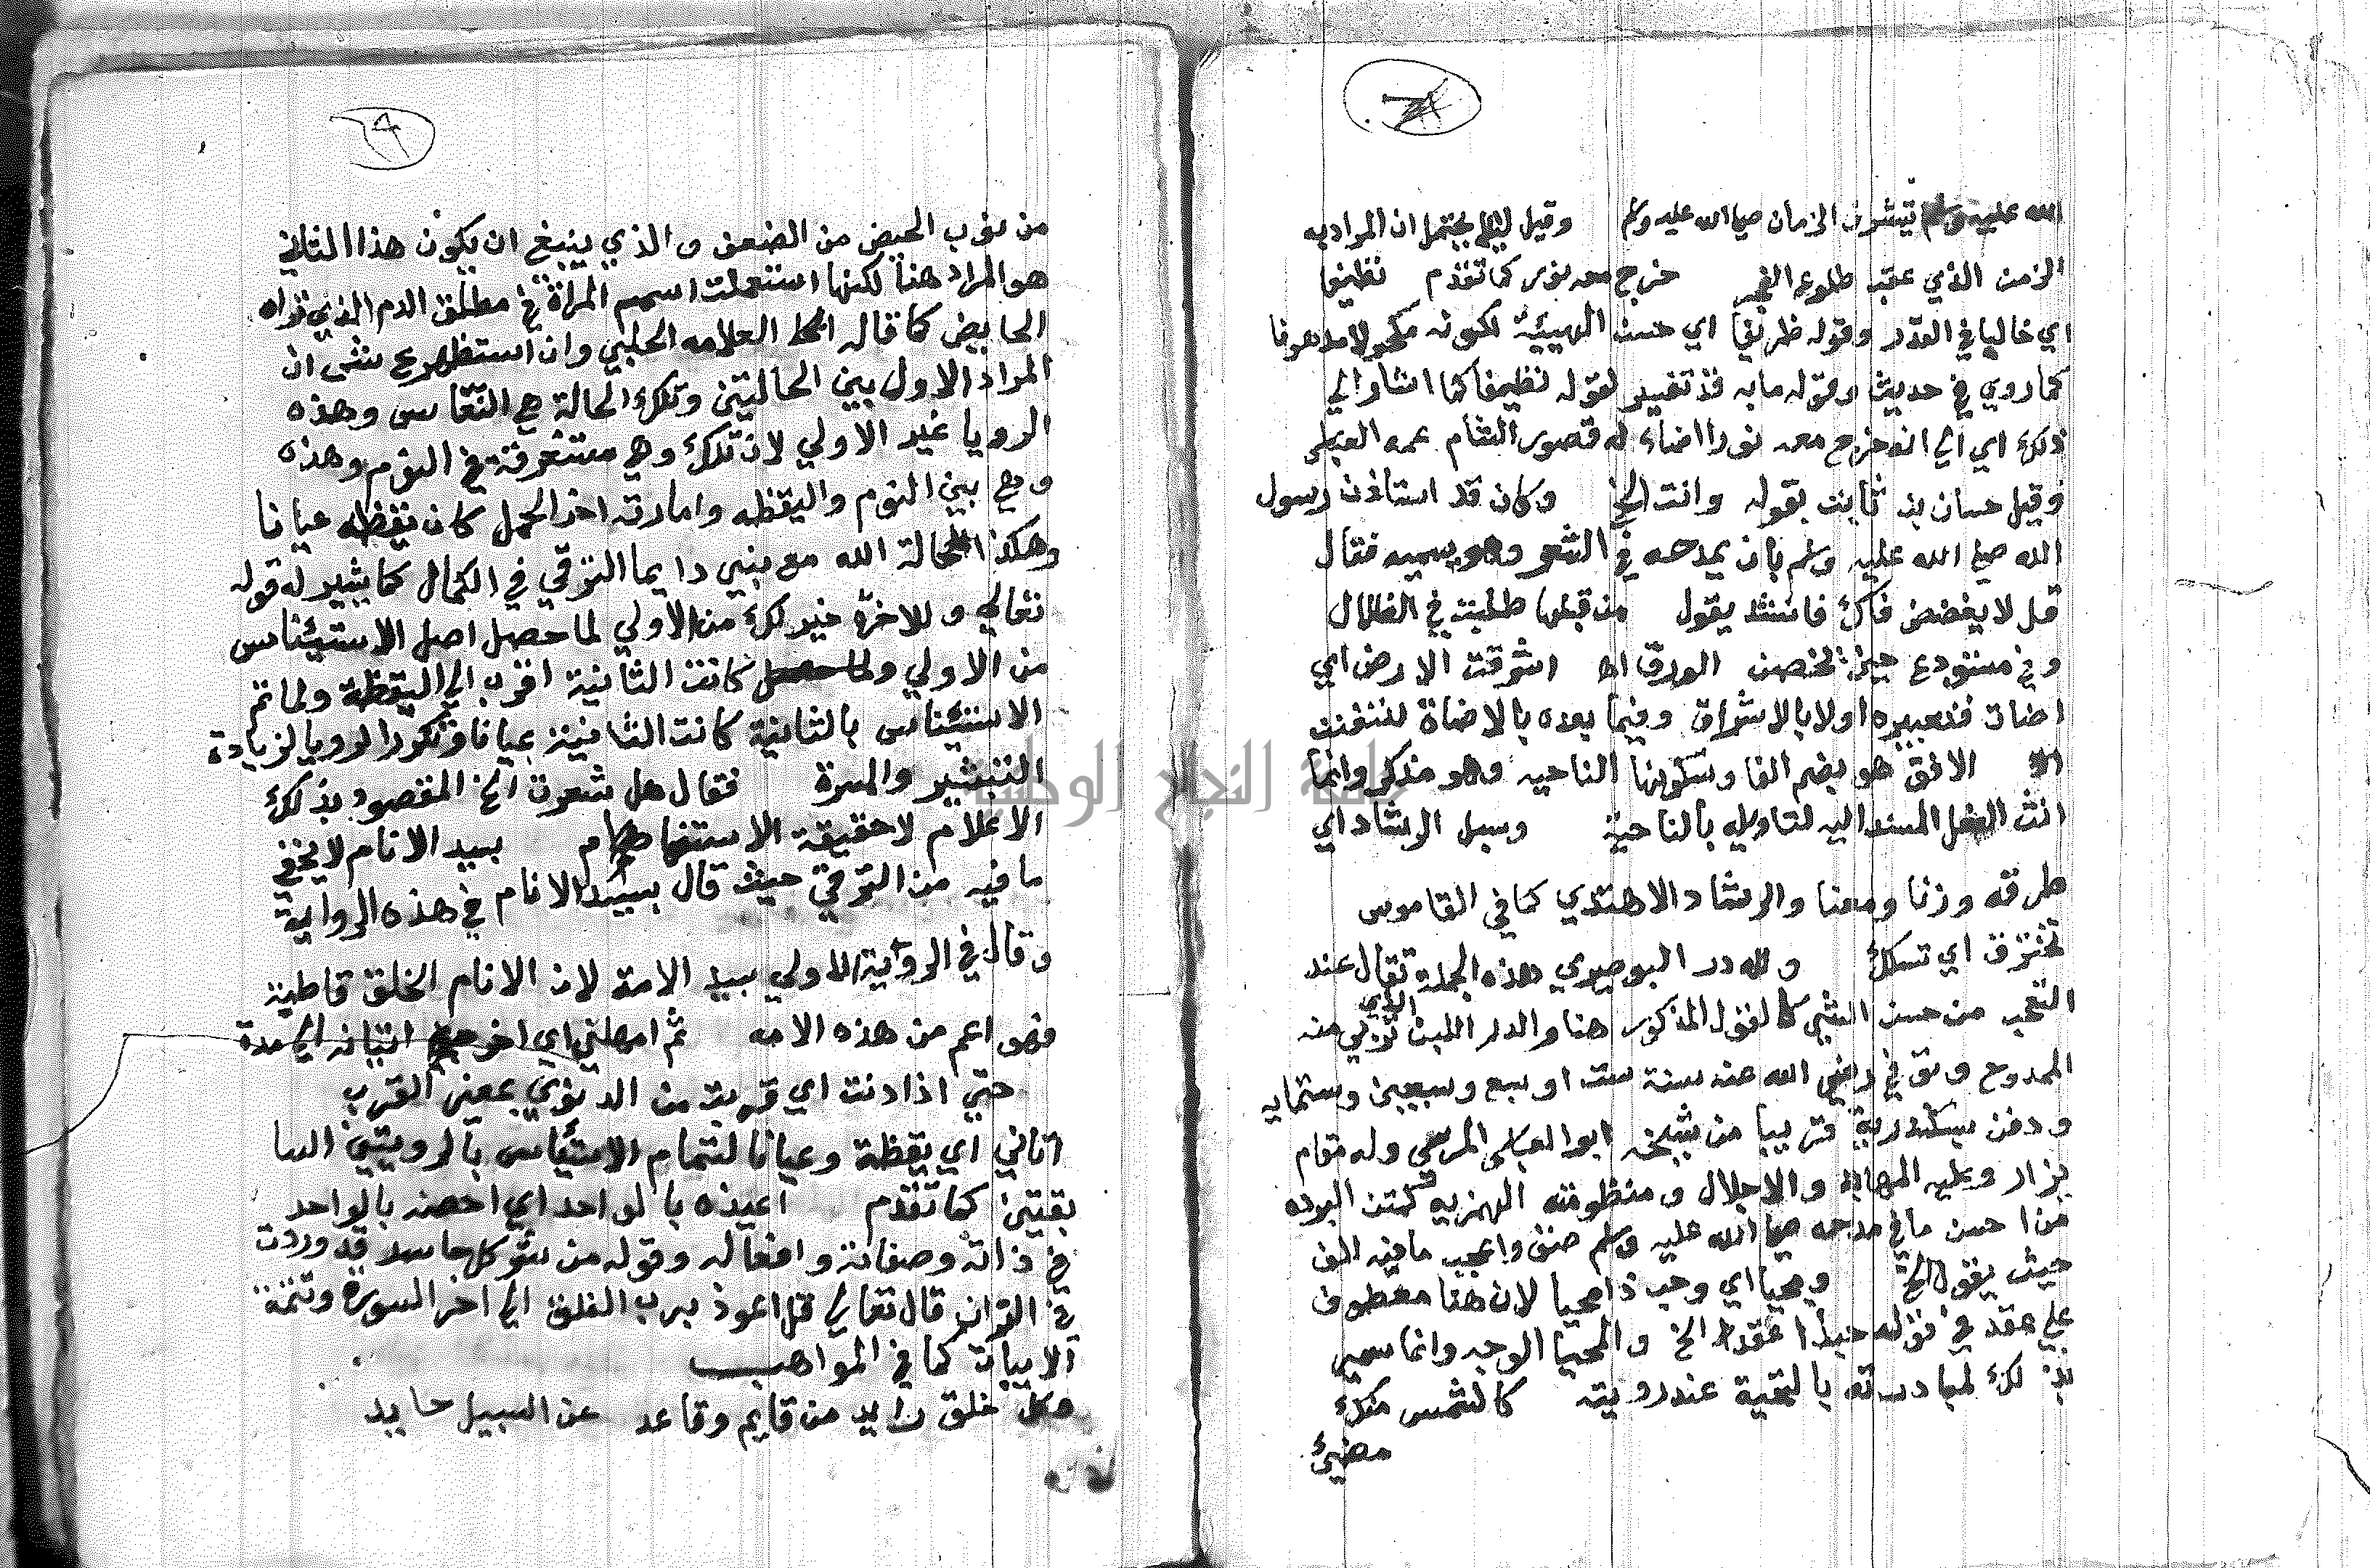 الله عليه وسلم تيشرف الزمان صلى الله عليه وسلم وقيل ليلا يحتمل ان المراد به
الزمن الذي عقب طلوع الفجر خرج معه نور كما تقدم نظيفا
اي خاليا في القذر وقوله ظريفا اي حسن الهيئة لكونه مكحولا مدهونا
كما روي في حديث وقوله ما به قذ تفسير لقوله نظيفا كما اشار الي
ذلك اي الي انه خرج معه نورا اضاء له قصور الشام عمه العباس
وقيل حسان بن ثابت بقوله وانت الخ وكان قد استاذن رسول
الله صلي الله عليه وسلم بان يمدحه في الشعر وهو يسميه فقال
قل لا يفضض فاك فانشد يقول من قبلها طلبت في الظلال
وفي مستودع حين تخصف الورق اه اشرقت الارض اي
اضات فتعبيره اولا بالاشراق وفيما بعده بالاضاة تفنن
الافق هو بضم الفا وسكونها الناحيه وهو مذكر وانما
انث الفعل المسند اليه لتاويله بالناحية وسبل الرشاد اي
طرقه وزنا ومعنا والرشاد الاهتدي كما في القاموس
تخترق اي تسلك ولله در البوصيري هذه الجملة تقال عند
التعجب من حسن الشي كالقول المذكور هنا والدر اللبن الذي تربي منه
الممدوح وتوفي رضي الله عنه سنة ست او سبع وسبعين وستمايه
ودفن بسكندرية قريبا من شيخه ابو العباس المرسي وله مقام
يزار وعليه المهابه والاجلال ومنظومته الهمزيه كمتن البرده
من احسن ما في مدحه صلي الله عليه وسلم صنف واعجب ما فيه الف
حيث يقول الخ ومحيا اي وحب ذا محيا لان هنا معطوف
علي عقد في قوله حبذا عقد الخ والمحيا الوجه وانما سمي
بذلك لمبادرته بالتحية عند رويته كالشمس منك
مضيئ
من يقرب الحيض من الضعف والذي ينبغي ان يكون هذا الثاني
هو المراد هنا لكنها استعملت اسم المراة في مطلق الدم الذي تراه
الحايض كما قاله المحط العلامه الحلبي وان استظهر ع ش ان
المراد الاول بين الحالتين وتلك الحالة هي النعاس وهذه
الرويا غير الاولي لان تلك وهي مستغرقة في النوم وهذه
وهي بين النوم واليقظه واما رته اخذ الحمل كان يقظه عيانا
وهكذا الحالة الله مع بنيي دايما الترقي في الكمال كما يشير له قوله
تعالي وللاخرة خير لك من الاولي لما حصل اصل الاستيناس
من الاولي كانت الثانية اقرب الي اليقظة ولما تم
الاستئناس بالثانية كانت الثانية عيانا وتكرر الرويا لزيادة
التبشير والمسرة فقال هل شعرت الخ المقصود بذلك
الاعلام لا حقيقة الاستفهام بسيد الانام لا يخفي
ما فيه من الترقي حيث قال بسيد الانام في هذه الرواية
وقال في الرواية الاولي بسيد الامة لان الانام الخلق قاطبة
وهو اعم من هذه الامه ثم امهلني اي اخر اتيانه الي مدة
حتي اذا دنت اي قربت من الدنوي بمعني القرب
اتاني اي يقظة وعيانا لتمام الاستئناس بالرويتين السا
بقتين كما تقدم اعيذه بالواحد اي احصنه بالواحد
في ذاته وصفاته وافعاله وقوله من شر كل حاسد قد وردت
في القران قال تعالي قل اعوذ برب الفلق الي اخر السورة وتتمة
الابيات كما في المواهب
وكل خلق رايد من قايم وقاعد عن السبيل حايد
جامعة النجاح الوطنية